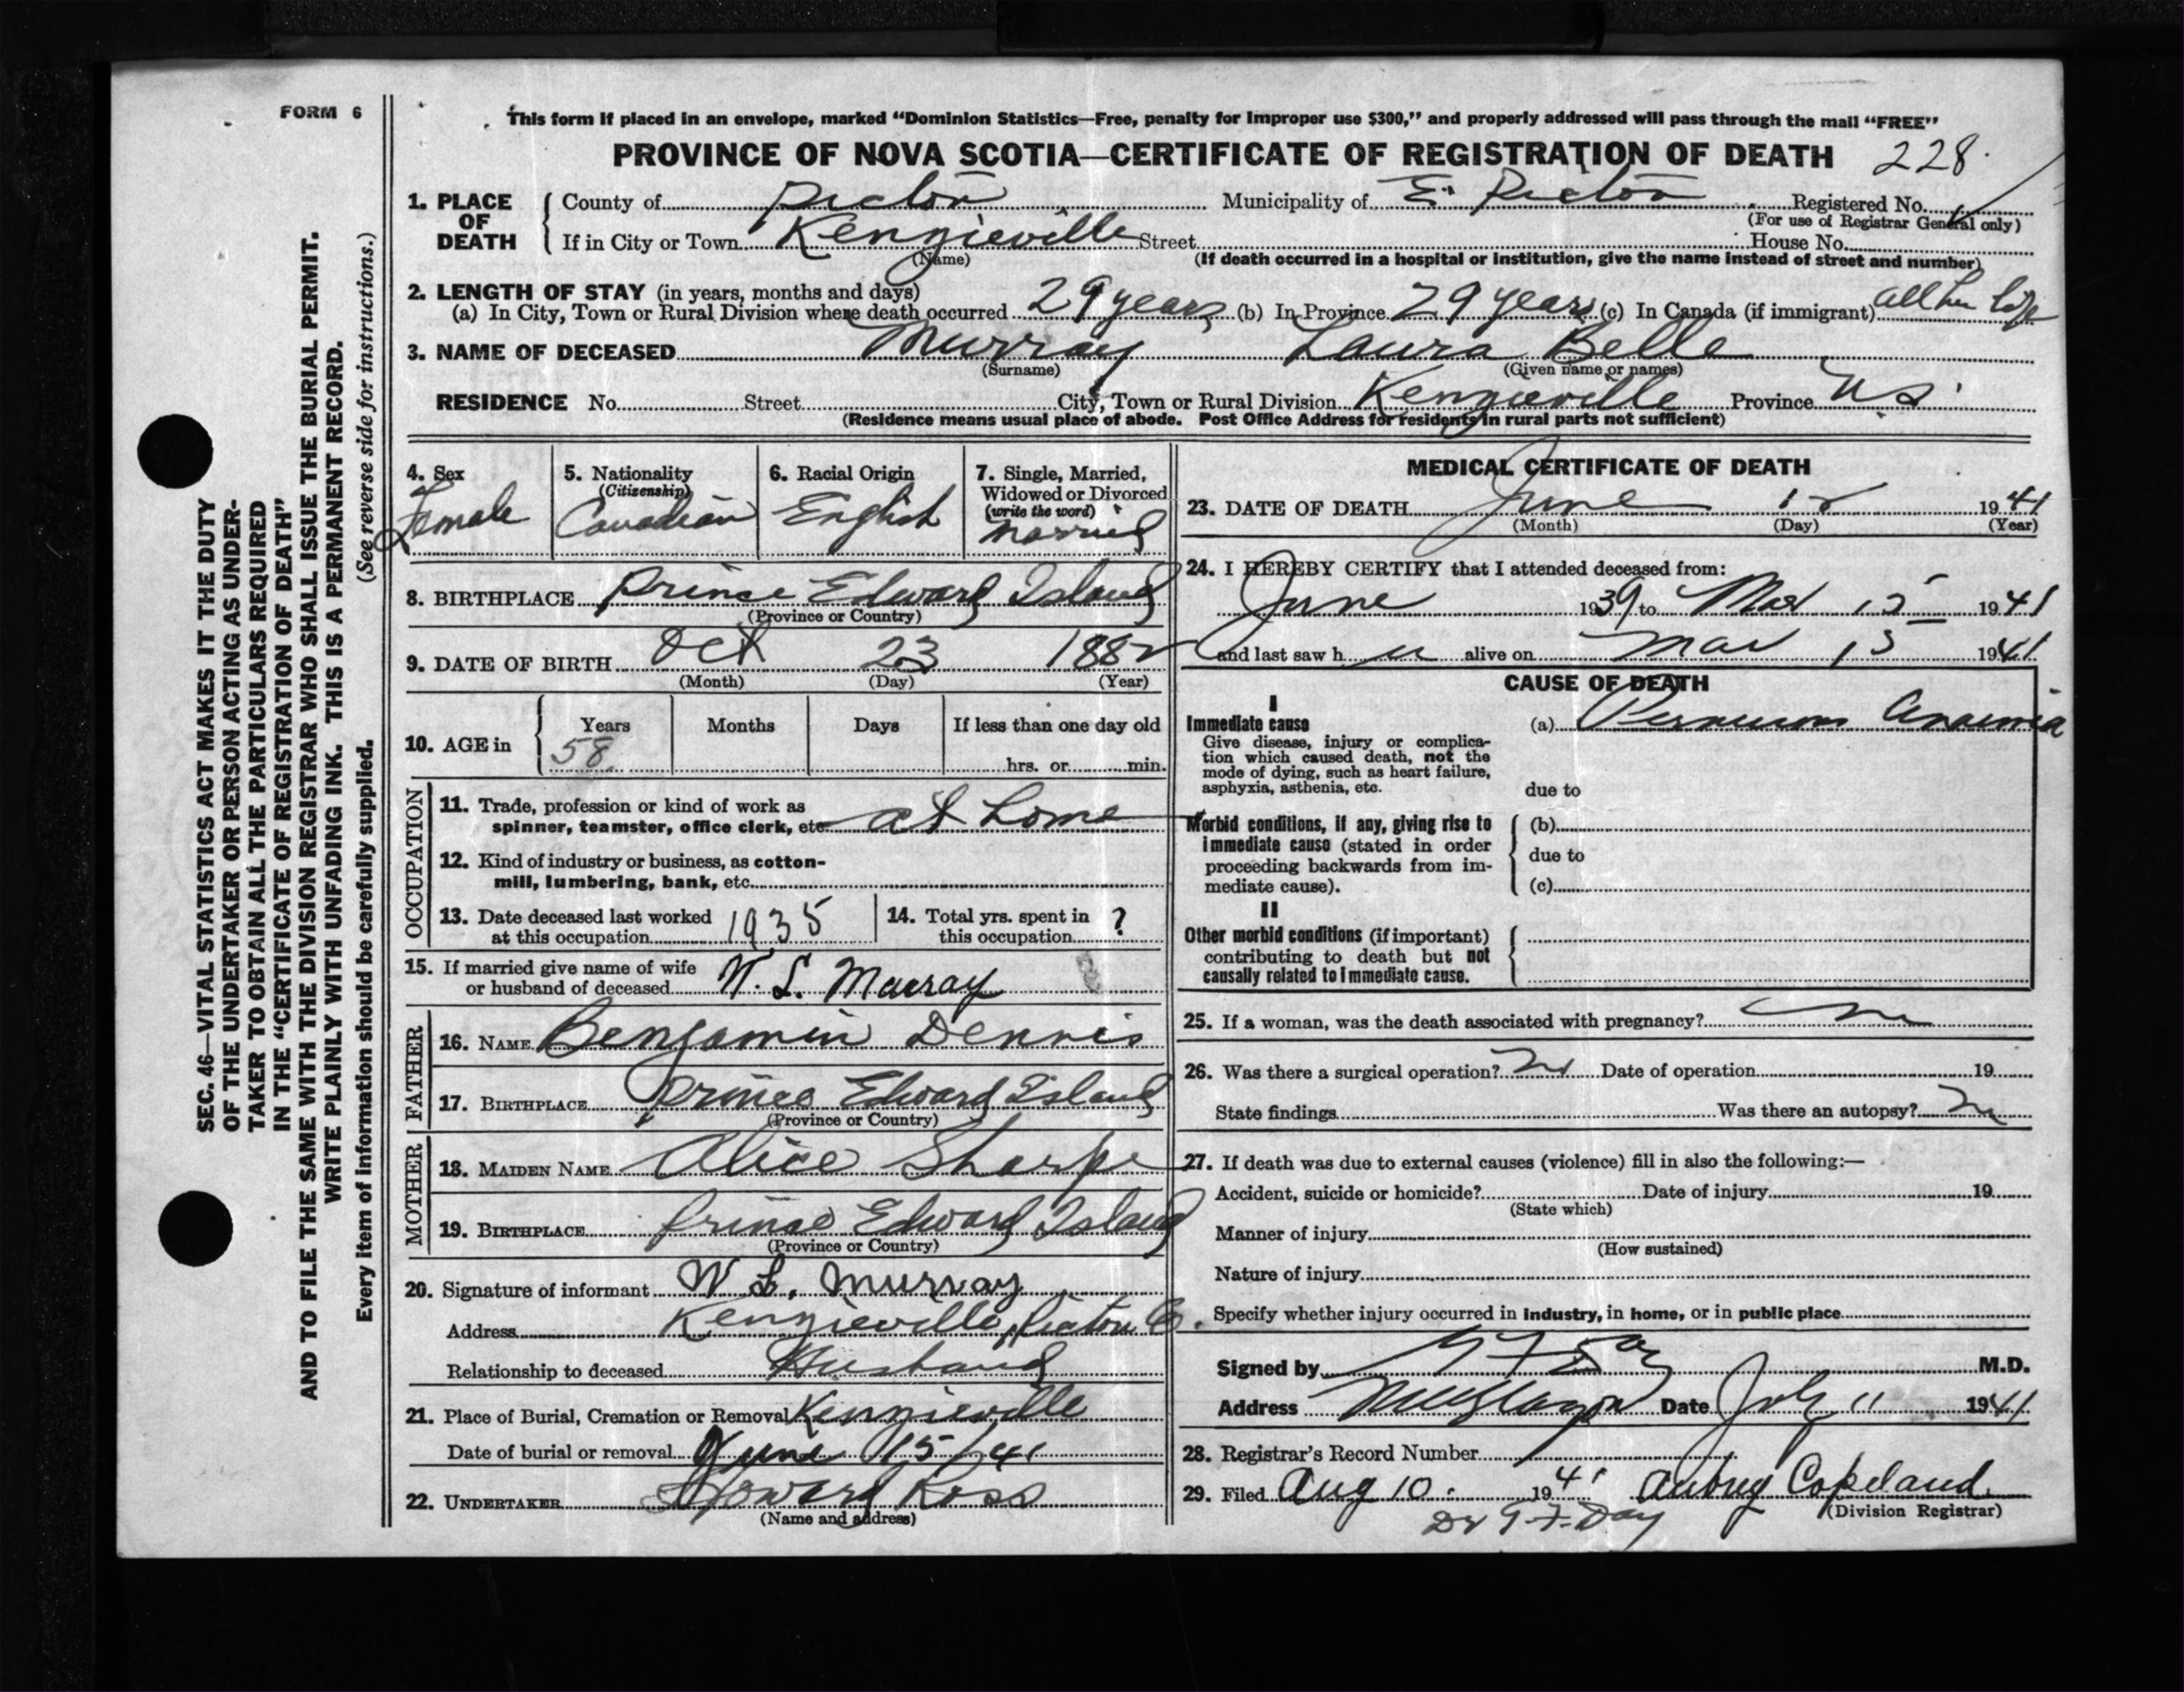 FORM 6
This form if placed in an envelope, marked “Dominion Statistics—Free, penalty for improper use $300,” and properly addressed will pass through the mail “FREE”
PROVINCE OF NOVA SCOTIA—CERTIFICATE OF REGISTRATION OF DEATH 228.
1. PLACE OF DEATH
County of Pictou Municipality of E. Pictou Registered No.
(For use of Registrar General only)
If in City or Town Kenzieville Street House No.
(Name) (If death occurred in a hospital or institution, give the name instead of street and number)
2. LENGTH OF STAY (in years, months and days)
(a) In City, Town or Rural Division where death occurred 29 years (b) In Province 29 years (c) In Canada (if immigrant) all her life
3. NAME OF DECEASED Murray Laura Belle
(Surname) (Given name or names)
RESIDENCE No. Street City, Town or Rural Division Kenzieville Province N.S.
(Residence means usual place of abode. Post Office Address for residents in rural parts not sufficient)
4. Sex
Female
5. Nationality
(Citizenship)
Canadian
6. Racial Origin
English
7. Single, Married,
Widowed or Divorced
(write the word)
Married
8. BIRTHPLACE Prince Edward Island
(Province or Country)
9. DATE OF BIRTH Oct 23 1882
(Month) (Day) (Year)
10. AGE in Years Months Days If less than one day old
58 hrs. or min.
OCCUPATION
11. Trade, profession or kind of work as
spinner, teamster, office clerk, etc. at Home
12. Kind of industry or business, as cotton-
mill, lumbering, bank, etc.
13. Date deceased last worked
at this occupation 1935
14. Total yrs. spent in
this occupation ?
15. If married give name of wife
or husband of deceased W. L. Murray
FATHER
16. NAME Benjamin Dennis
17. BIRTHPLACE Prince Edward Island
(Province or Country)
MOTHER
18. MAIDEN NAME Alice Sharpe
19. BIRTHPLACE Prince Edward Island
(Province or Country)
20. Signature of informant W L. Murray
Address Kenzieville, Pictou Co.
Relationship to deceased Husband
21. Place of Burial, Cremation or Removal Kenzieville
Date of burial or removal June 15/41
22. UNDERTAKER Howard Ross
(Name and address)
MEDICAL CERTIFICATE OF DEATH
23. DATE OF DEATH June 12 1941
(Month) (Day) (Year)
24. I HEREBY CERTIFY that I attended deceased from:
June 1939 to Mar 15 1941
and last saw h er alive on Mar 15 1941
CAUSE OF DEATH
I
Immediate cause (a) Pernicious Anaemia
Give disease, injury or complica-
tion which caused death, not the
mode of dying, such as heart failure,
asphyxia, asthenia, etc. due to
Morbid conditions, if any, giving rise to (b)
immediate cause (stated in order
proceeding backwards from im- due to
mediate cause). (c)
II
Other morbid conditions (if important)
contributing to death but not
causally related to immediate cause.
25. If a woman, was the death associated with pregnancy? no
26. Was there a surgical operation? no Date of operation 19
State findings Was there an autopsy? no
27. If death was due to external causes (violence) fill in also the following:—
Accident, suicide or homicide? Date of injury 19
(State which)
Manner of injury
(How sustained)
Nature of injury
Specify whether injury occurred in industry, in home, or in public place
Signed by G F Day M.D.
Address Date July 11 1941
28. Registrar's Record Number
29. Filed Aug 10. 1941 Aubrey Copeland
(Division Registrar)
Dr G. F. Day
SEC. 46—VITAL STATISTICS ACT MAKES IT THE DUTY
OF THE UNDERTAKER OR PERSON ACTING AS UNDER-
TAKER TO OBTAIN ALL THE PARTICULARS REQUIRED
IN THE “CERTIFICATE OF REGISTRATION OF DEATH”
AND TO FILE THE SAME WITH THE DIVISION REGISTRAR WHO SHALL ISSUE THE BURIAL PERMIT.
WRITE PLAINLY WITH UNFADING INK. THIS IS A PERMANENT RECORD.
Every item of information should be carefully supplied. (See reverse side for instructions.)